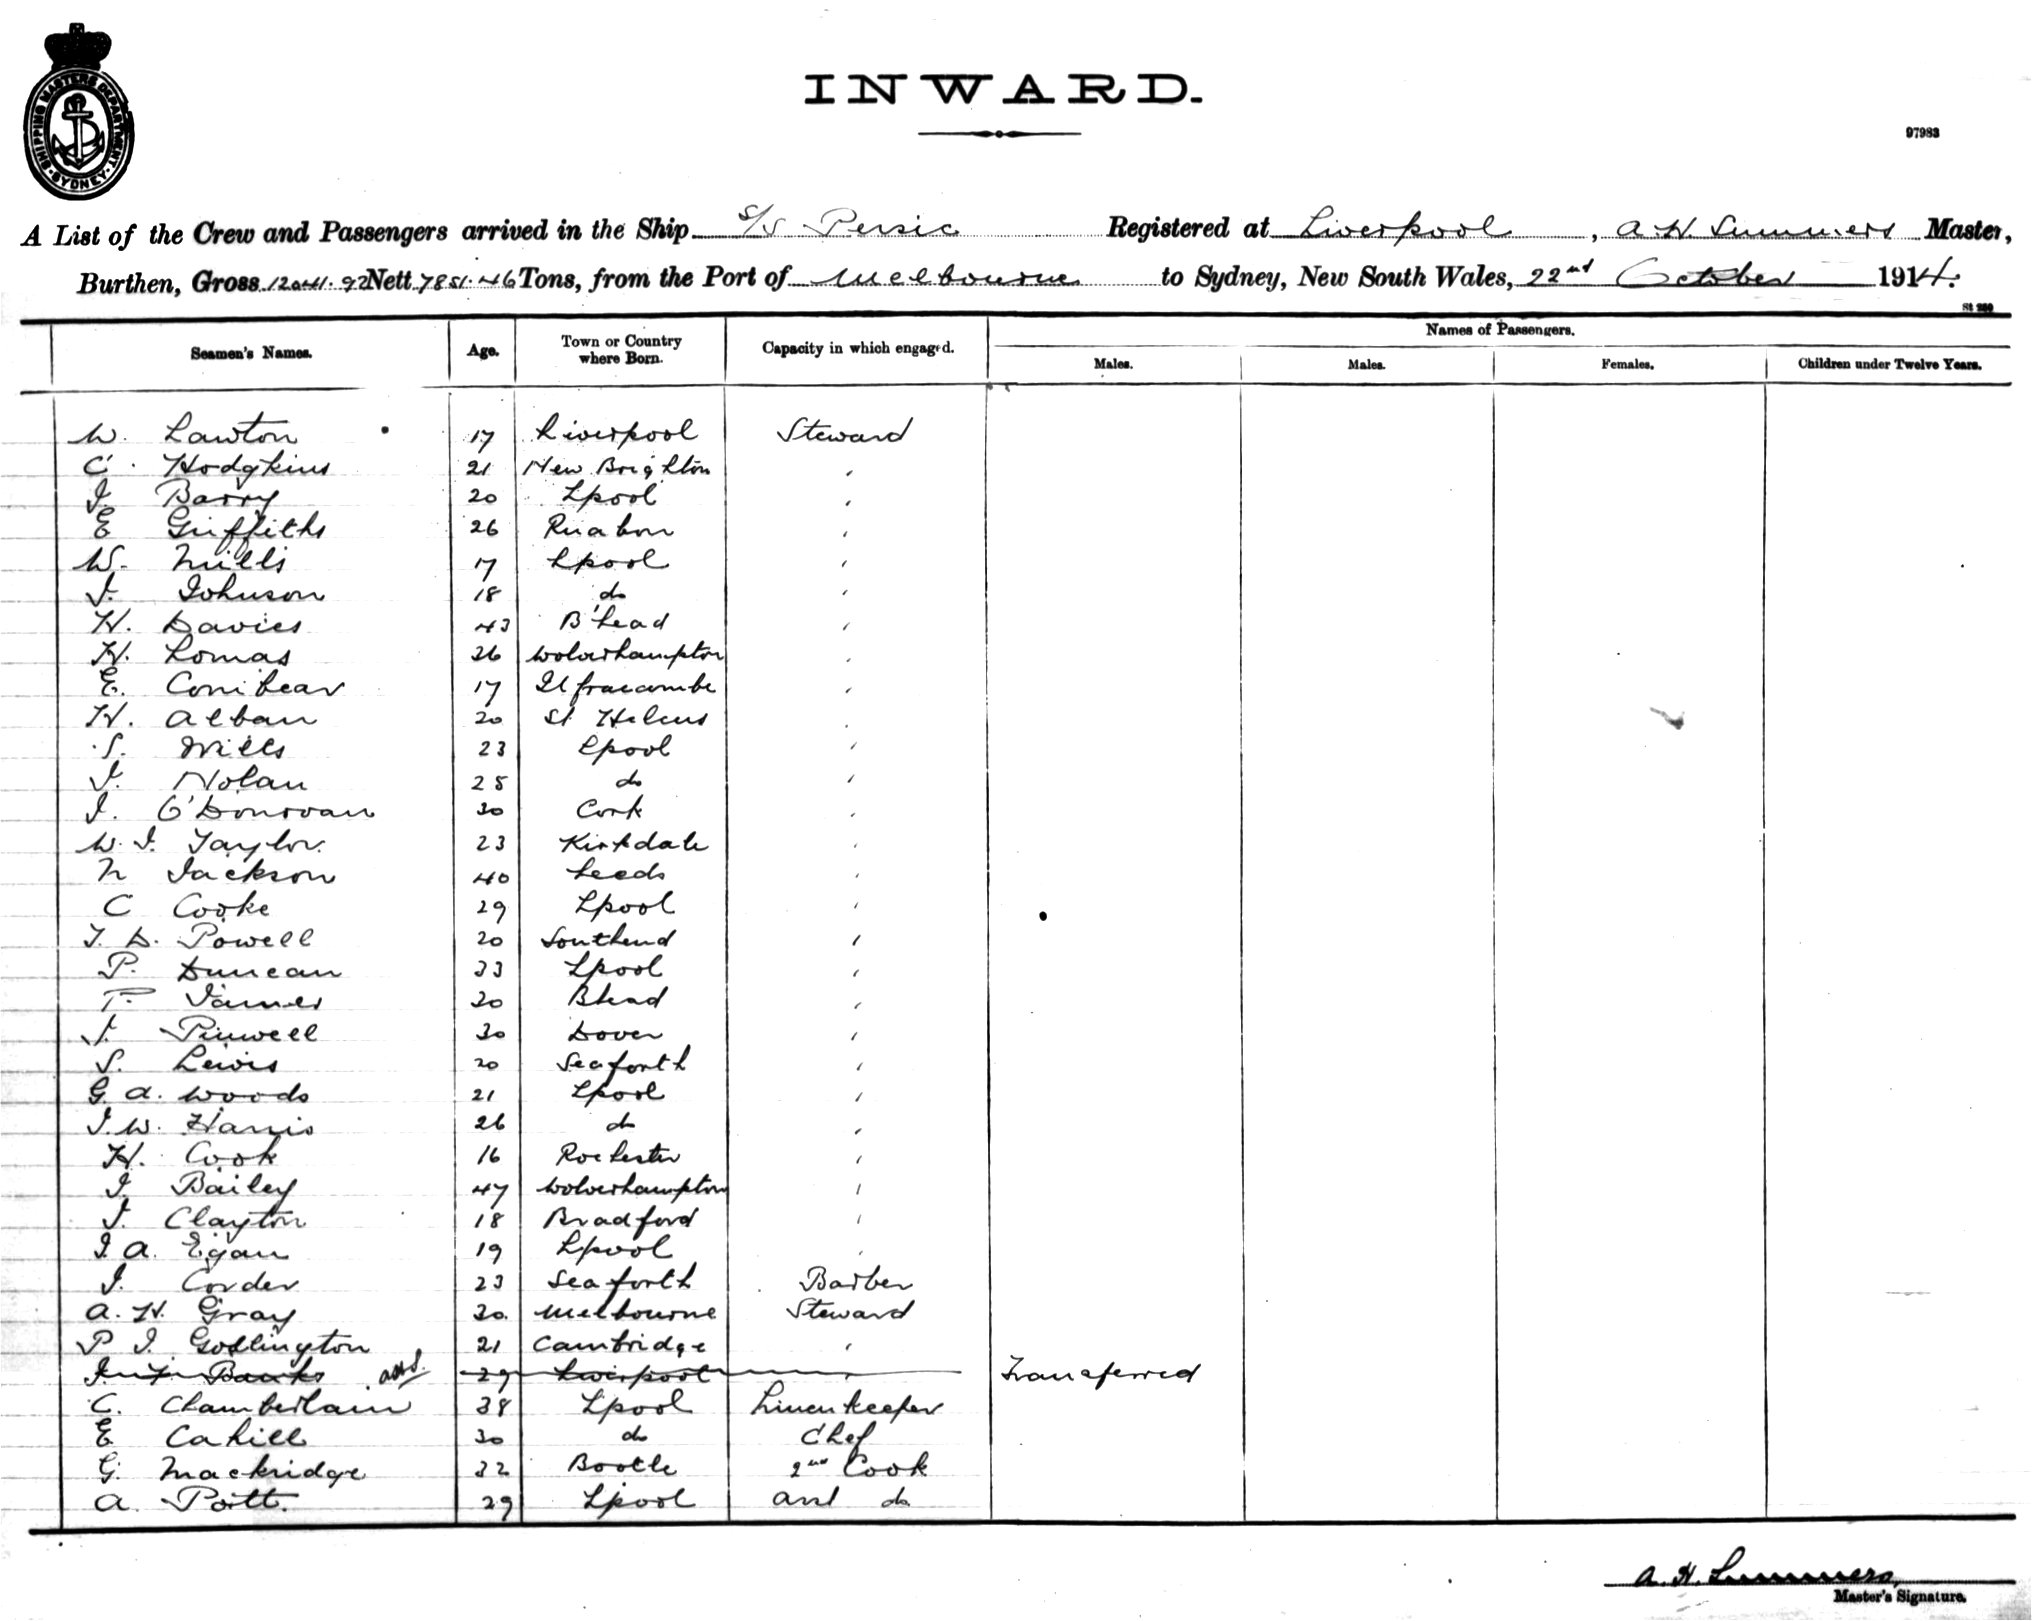 SHIPPING MASTERS DEPARTMENT · SYDNEY ·
INWARD.
97983
A List of the Crew and Passengers arrived in the Ship S/S Persic Registered at Liverpool, A. H. Summers Master,
Burthen, Gross 12041.92 Nett 7851.46 Tons, from the Port of Melbourne to Sydney, New South Wales, 22nd October 1914.
St 289
Seamen's Names. Age. Town or Country where Born. Capacity in which engaged. Names of Passengers.
Males. Males. Females. Children under Twelve Years.
W. Lawton 17 Liverpool Steward
C. Hodgkins 21 New Brighton "
J. Barry 20 Lpool "
E Griffiths 26 Ruabon "
W. Mills 17 Lpool "
J. Johnson 18 do "
H. Davies 43 B'head "
H. Lomas 26 Wolverhampton "
E. Conibear 17 Ilfracombe "
H. Alban 20 St Helens "
S. Wills 23 Lpool "
J. Nolan 25 do "
J. O'Donovan 30 Cork "
W. J. Taylor 23 Kirkdale "
N Jackson 40 Leeds "
C Cooke 29 Lpool "
T. D. Powell 20 Southend "
P. Duncan 33 Lpool "
T. James 20 Bhead "
J. Pinwell 30 Dover "
S. Lewis 20 Seaforth "
G. A. Woods 21 Lpool "
J. W. Harris 26 do "
H. Cook 16 Rochester "
J. Bailey 47 Wolverhampton "
J. Clayton 18 Bradford "
J. A. Egan 19 Lpool "
J. Corder 23 Seaforth Barber
A. H. Gray 30 Melbourne Steward
P J. Goslington 21 Cambridge "
Banks 29 Liverpool " Transferred
C. Chamberlain 38 Lpool Linenkeeper
E Cahill 30 do Chef
G. Mackridge 32 Bootle 2nd Cook
A. Pott. 29 Lpool do
A. H. Summers
Master's Signature.